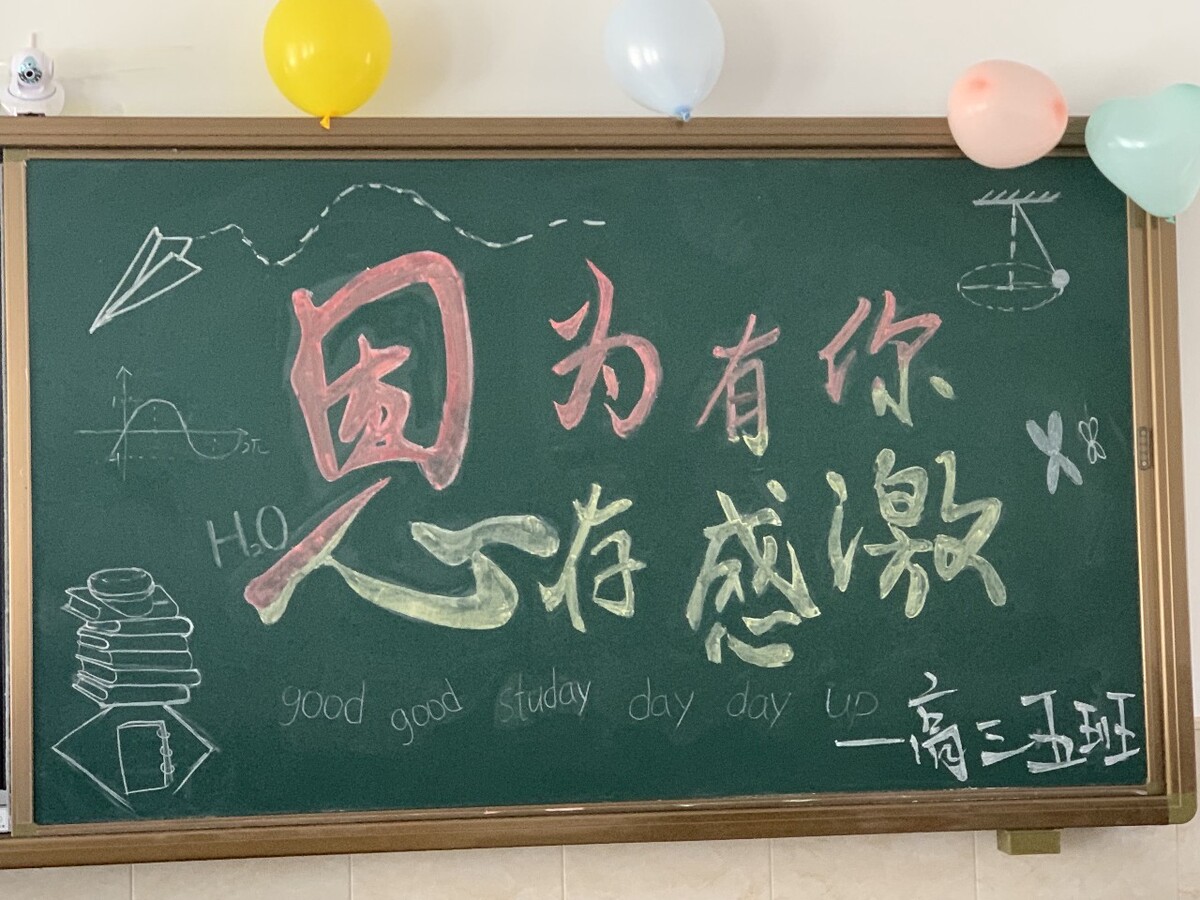 因为有你
1
-1
2π
心存感激
H₂O
good good studay day day up
—高三五班